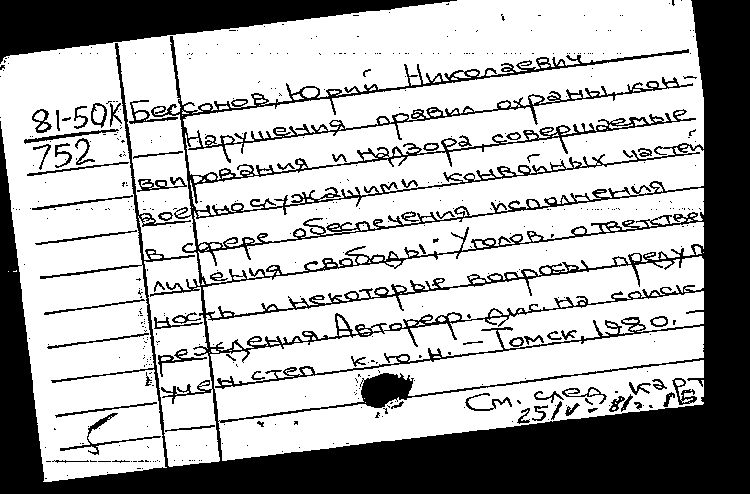 81-50К Бессонов, Юрий Николаевич.
752
Нарушения правил охраны, кон-
воирования и надзора, совершаемые
военнослужащими конвойных частей
в сфере обеспечения исполнения
лишения свободы; Уголов. ответствен
ность и некоторые вопросы предуп
реждения. Автореф. дис. на соиск.
учен. степ к.ю.н. – Томск, 1980. –
См. след. карт
25/V – 81г.